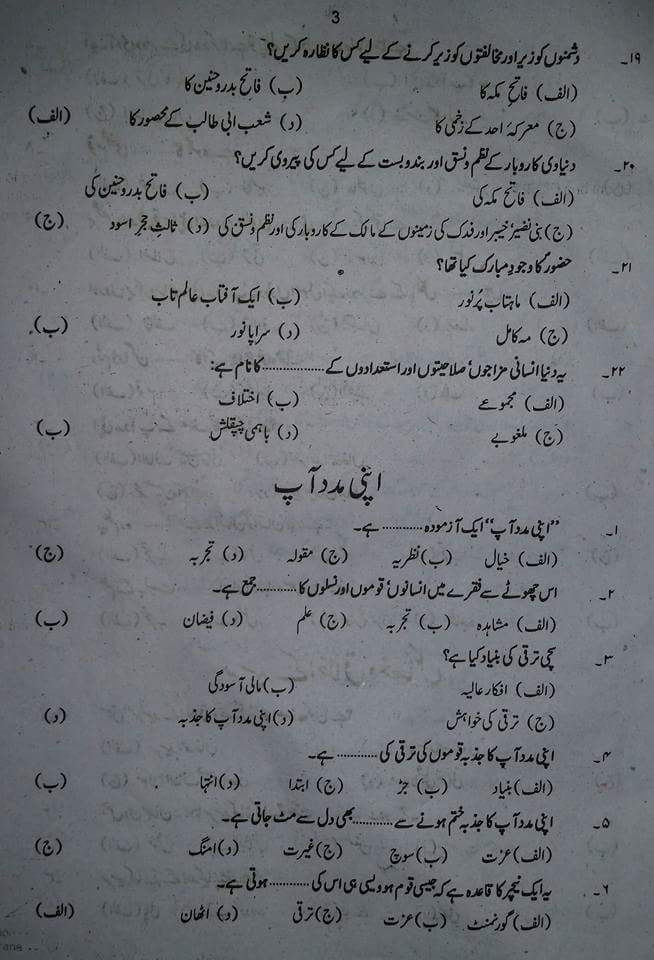 3
۱۹۔ دشمنوں کو زیر اور مخالفتوں کو زیر کرنے کے لیے کس کا نظارہ کریں؟
(الف) فاتح مکہ کا (ب) فاتح بدر و حنین کا
(ج) معرکۂ احد کے زخمی کا (د) شعب ابی طالب کے محصور کا (الف)
۲۰۔ دنیاوی کاروبار کے نظم و نسق اور بندوبست کے لیے کس کی پیروی کریں؟
(الف) فاتح مکہ کی (ب) فاتح بدر و حنین کی
(ج) بنی نضیر، خیبر اور فدک کی زمینوں کے مالک کے کاروبار کی اور نظم و نسق کی (د) ثالث حجر اسود (ج)
۲۱۔ حضورؐ کا وجود مبارک کیا تھا؟
(الف) ماہتاب پُر نور (ب) ایک آفتاب عالم تاب
(ج) مہ کامل (د) سراپا نور (ب)
۲۲۔ یہ دنیا انسانی مزاجوں، صلاحیتوں اور استعدادوں کے .............. کا نام ہے:
(الف) مجموعے (ب) اختلاف
(ج) ملغوبے (د) باہمی چپقلش (ب)
اپنی مدد آپ
۱۔ “اپنی مدد آپ“ ایک آزمودہ ........... ہے۔
(الف) خیال (ب) نظریہ (ج) مقولہ (د) تجربہ (ج)
۲۔ اس چھوٹے سے فقرے میں انسانوں، قوموں اور نسلوں کا ........... جمع ہے۔
(الف) مشاہدہ (ب) تجربہ (ج) علم (د) فیضان (ب)
۳۔ سچی ترقی کی بنیاد کیا ہے؟
(الف) افکار عالیہ (ب) مالی آسودگی
(ج) ترقی کی خواہش (د) اپنی مدد آپ کا جذبہ (د)
۴۔ اپنی مدد آپ کا جذبہ قوموں کی ترقی کی ........... ہے۔
(الف) بنیاد (ب) جڑ (ج) ابتدا (د) انتہا (ب)
۵۔ اپنی مدد آپ کا جذبہ ختم ہونے سے ........... بھی دل سے مٹ جاتی ہے۔
(الف) عزت (ب) سوچ (ج) غیرت (د) امنگ (ج)
۶۔ یہ ایک نیچر کا قاعدہ ہے کہ جیسی قوم ہو ویسی ہی اس کی ........... ہوتی ہے۔
(الف) گورنمنٹ (ب) عزت (ج) ترقی (د) اٹھان (الف)